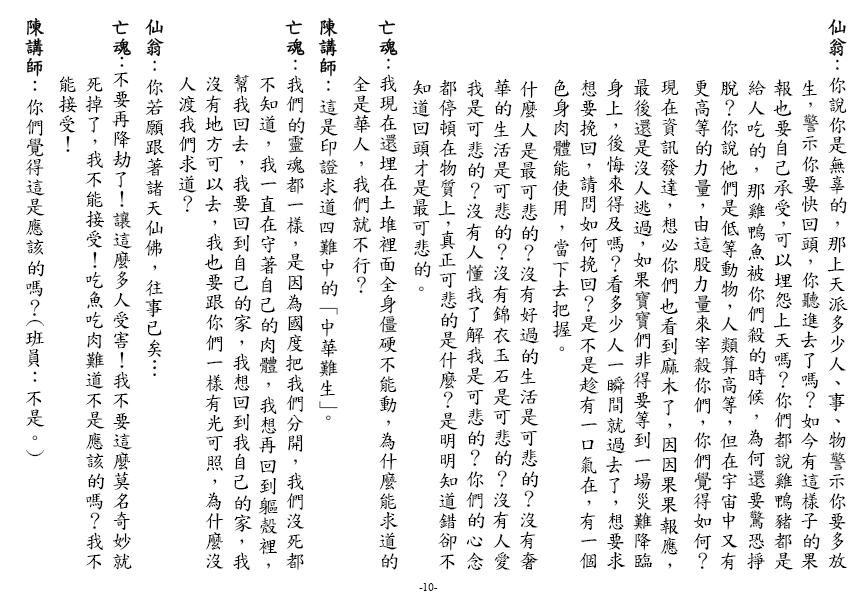 仙翁：你說你是無辜的，那上天派多少人、事、物警示你要多放
生，警示你要快回頭，你聽進去了嗎？如今有這樣子的果
報也要自己承受，可以埋怨上天嗎？你們都說雞鴨豬都是
給人吃的，那雞鴨魚被你們殺的時候，為何還要驚恐掙
脫？你說他們是低等動物，人類算高等，但在宇宙中又有
更高等的力量，由這股力量來宰殺你們，你們覺得如何？
現在資訊發達，想必你們也看到麻木了，因因果果報應，
最後還是沒人逃過，如果寶寶們非得要等到一場災難降臨
身上，後悔來得及嗎？看多少人一瞬間就過去了，想要求
想要挽回，請問如何挽回？是不是趁有一口氣在，有一個
色身肉體能使用，當下去把握。
什麼人是最可悲的？沒有好過的生活是可悲的？沒有奢
華的生活是可悲的？沒有錦衣玉石是可悲的？沒有人愛
我是可悲的？沒有人懂我了解我是可悲的？你們的心念
都停頓在物質上，真正可悲的是什麼？是明明知道錯卻不
知道回頭才是最可悲的。
亡魂：我現在還埋在土堆裡面全身僵硬不能動，為什麼能求道的
全是華人，我們就不行？
陳講師：這是印證求道四難中的「中華難生」。
亡魂：我們的靈魂都一樣，是因為國度把我們分開，我們沒死都
不知道，我一直在守著自己的肉體，我想再回到軀殼裡，
幫我回去，我要回到自己的家，我想回到我自己的家，我
沒有地方可以去，我也要跟你們一樣有光可照，為什麼沒
人渡我們求道？
仙翁：你若願跟著諸天仙佛，往事已矣…
亡魂：不要再降劫了！讓這麼多人受害！我不要這麼莫名奇妙就
死掉了，我不能接受！吃魚吃肉難道不是應該的嗎？我不
能接受！
陳講師：你們覺得這是應該的嗎？（班員：不是。）
-10-